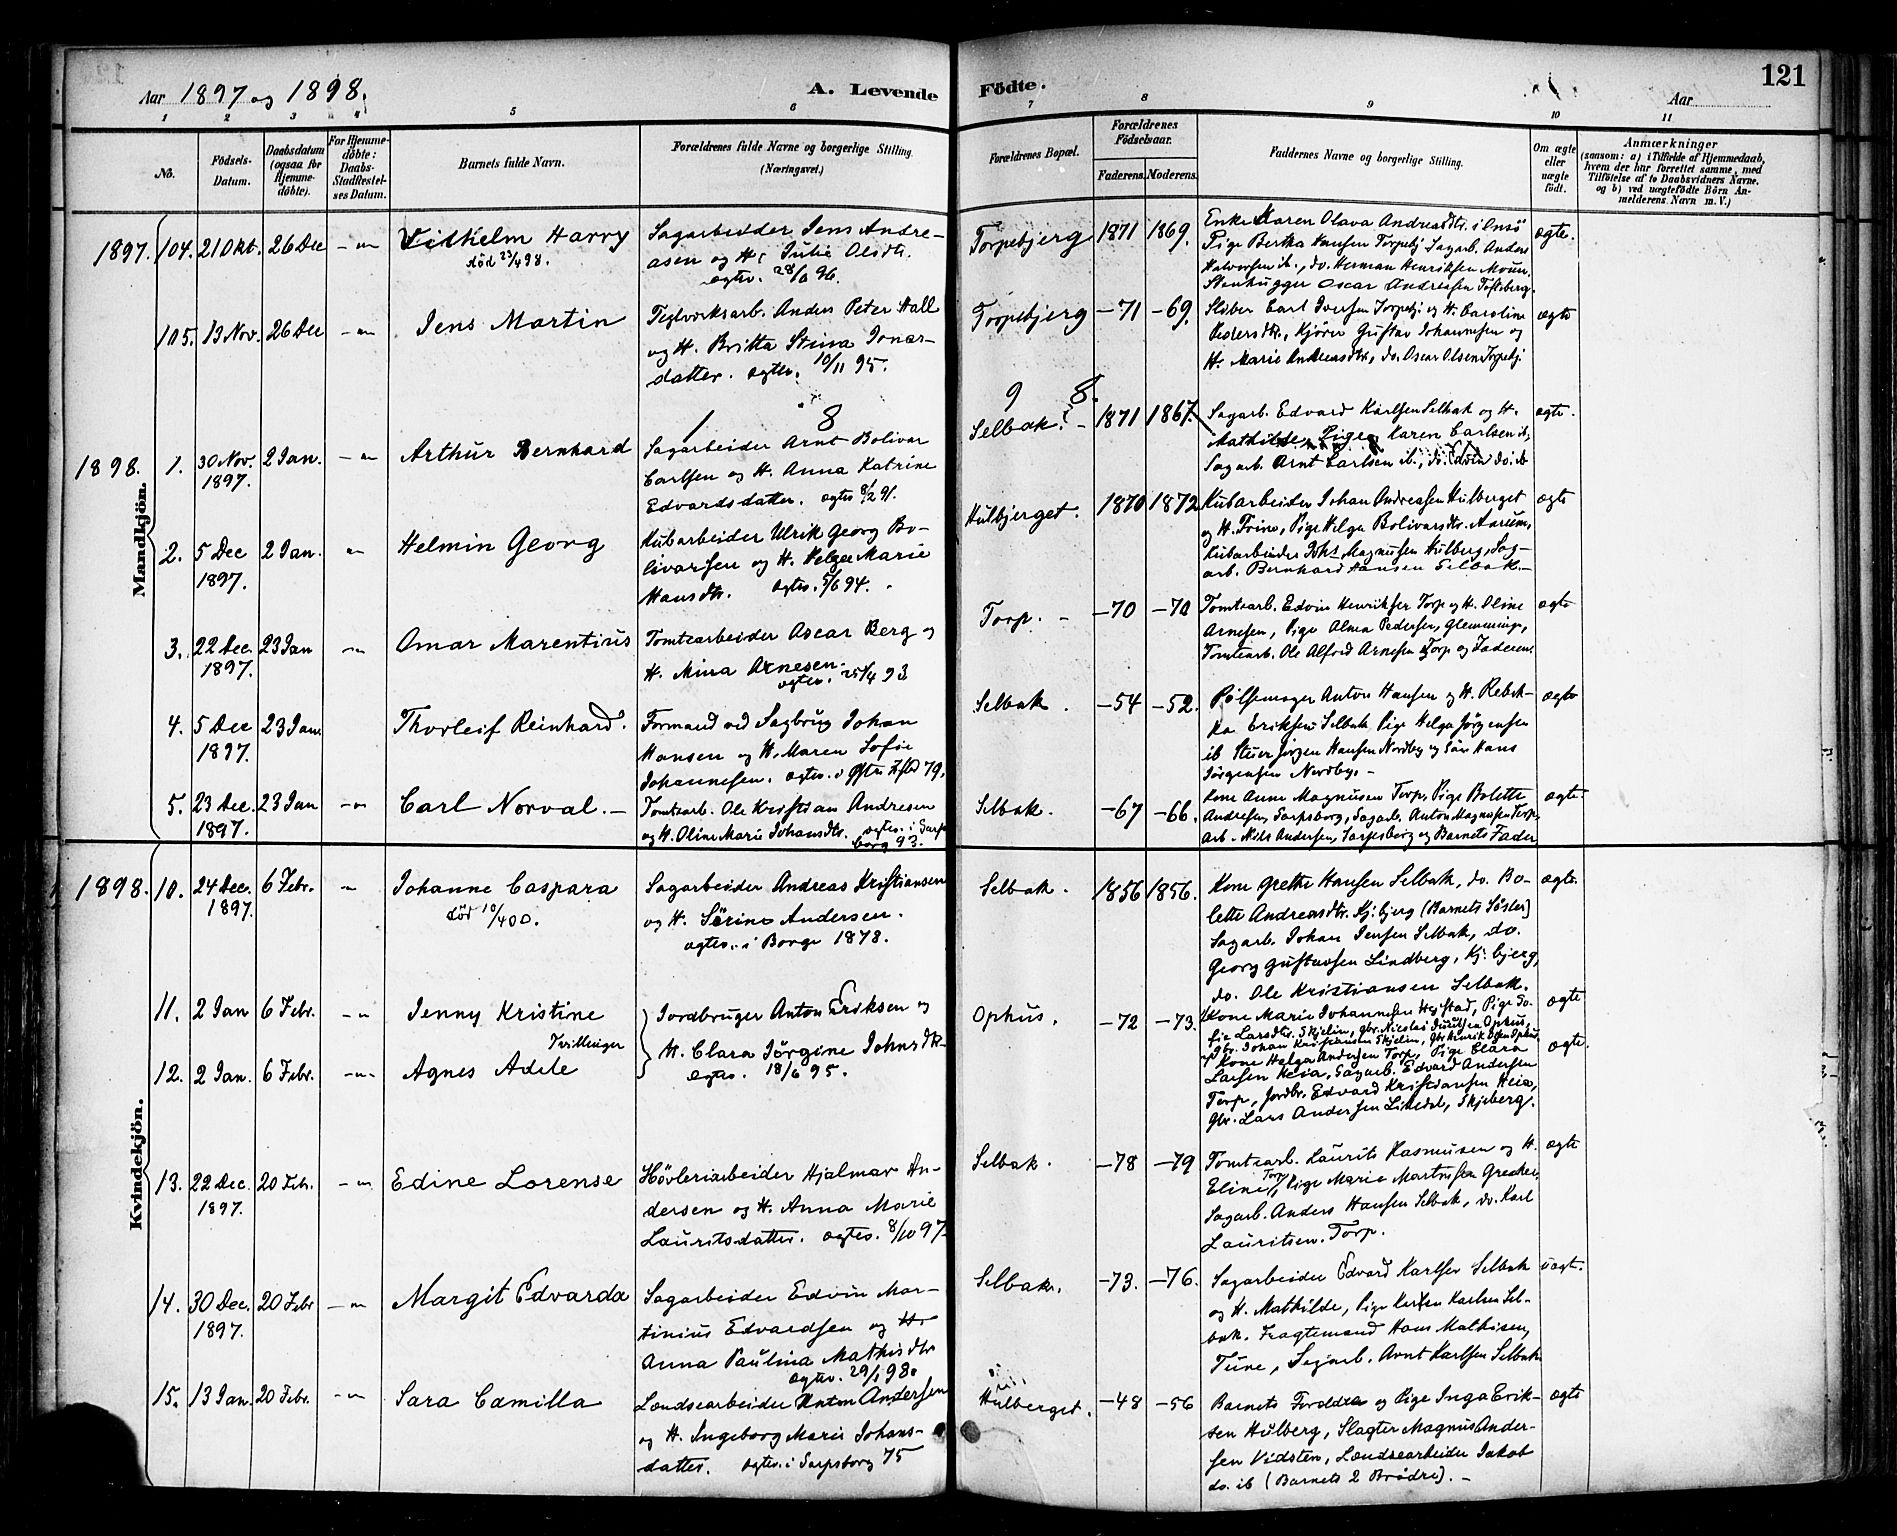 Aar 1897 og 1898.
A. Levende
Fødte.
121
Aar
1 2 3 4 5 6 7 8 9 10 11
No.
Fødsels-Datum.
Daabsdatum (ogsaa for Hjemme-døbte).
For Hjemme-døbte: Daabs-Stadfæstel-ses Datum.
Barnets fulde Navn.
Forældrenes fulde Navne og borgerlige Stilling. (Næringsvei.)
Forældrenes Bopæl.
Forældrenes Fødselsaar.
Faderens. Moderens.
Faddernes Navne og borgerlige Stilling.
Om ægte eller uægte født.
Anmærkninger
(saasom: a) i Tilfælde af Hjemmedaab, hvem der har forrettet samme, med Tilføielse af to Daabsvidners Navne, og b) ved uægtefødte Børn An-melderens Navn m. V.)
1897. 104. 21 Okt. 26 Dec
Vilhelm Harry
død 23/4 98.
Sagarbeider Jens Andre-
asen og H. Julie Olsdtr.
Torpebjerg 1871 1869.
Enke Karen Olava Andreasdtr. i Onsø
Pige Bertha Hansen Torpebj. Sagarb. Anders
Halvorsen ib., do. Herman Henriksen Moum.
Stenhugger Oscar Andreasen
ægte.
105. 13 Nov. 26 Dec
Jens Martin
Teglverksarb. Anders Peter Hall
og H. Britta Stina Jonas-
datter. ægtev. 10/11 95.
Torpebjerg -71 -69.
Sliber Carl Iversen Torpebj. og H. Caroline
Pedersdtr., Kjører Gustav Johannesen og
H. Marie Andreasdtr., do. Oscar Olsen Torpebj
ægte
1 8
9 8.
Mandkjön.
1898. 1. 30 Nov. 1897. 2 Jan.
Arthur Bernhard
Sagarbeider Arnt Bolivar
Carlsen og H. Anna Katrine
Edvardsdatter.
Selbak. 1871 1867.
Sagarb. Edvard Karlsen Selbak og H.
Mathilde, Pige Karen Carlsen ib,
Sagarb. Arnt Carlsen ib., do. Edvin do. ib
ægte.
2. 5 Dec 1897. 2 Jan.
Helmin Georg
Kubarbeider Ulrik Georg Bo-
livarsen og H. Helga Marie
Hansdtr. ægtev. 5/6 94.
Hulbjerget. 1870 1872
Kubarbeider Johan Andreasen Hulberget
og H. Trine, Pige Helga Bolivarsdtr. Aarum,
Kubarbeider Johs Magnussen Hulberg, Sag-
arb. Bernhard Hansen Selbak.
ægte
3. 22 Dec. 1897. 23 Jan
Omar Marentius
Tomtearbeider Oscar Berg og
H. Mina Arnesen.
ægtev. 25/4 93
Torp. -70 -70
Tomtearb. Edvin Henriksen Torp og H. Oline
Arnesen, Pige Alma Pedersen, Glemminge,
Tomtearb. Ole Alfred Arnesen Torp og Faderen.
ægte
4. 5 Dec 1897. 23 Jan
Thorleif Reinhard.
Formand ved Sagbrug Johan
Hansen og H. Maren Sofie
Johannesen.
Selbak. -54 -52.
Pølsemager Anton Hansen og H. Rebek-
ka Eriksen Selbak Pige Helga Jørgensen
ib Stuer Jørgen Hansen Nordby og Søn Hans
Jørgensen Nordby.
ægte
5. 23 Dec. 1897. 23 Jan
Carl Norval.
Tomtearb. Ole Kristian Andresen
og H. Oline Marie Johansdtr. ægtev. i Sarps
borg 93.
Selbak. -67 -66.
Kone Anne Magnusen Torp, Pige Bolette
Andresen, Sarpsborg, Sagarb. Anton Magnusen Torp,
arb. Niels Andersen, Sarpsborg og Barnets Fader
ægte.
Kvindekjön.
1898. 10. 24 Dec. 1897. 6 Febr.
Johanne Caspara
død 10/4 00.
Sagarbeider Andreas Kristiansen
og H. Sørine Andersen.
ægtev. i Borge 1878.
Selbak. 1856 1856.
Kone Grethe Hansen Selbak, do. Bo-
lette Andreasdtr. Kj:bjerg (Barnets Søster)
Sagarb. Johan Jensen Selbak, do.
Georg Gustavsen Lindberg, Kj:bjerg,
do. Ole Kristiansen Selbak.
ægte.
11. 2 Jan 6 Febr.
Jenny Kristine
Tvillinger
12. 2 Jan. 6 Febr.
Agnes Adele
Jordbruger Anton Eriksen og
H. Clara Jørgine Johnsdtr.
ægtev. 18/6 95.
Ophus. -72 -73.
Kone Marie Johannesen Hogstad, Pige So-
fie Larsdtr. Skjelin,
Kone Helga Andersen Torp, Pige Clara
Larsen Heia, Sagarb. Edvard Andersen
Torp, Jordbr. Edvard Kristiansen Heia,
Gbr. Lars Andersen Skjeberg.
ægte
ægte.
13. 22 Dec. 1897. 20 Febr.
Edine Lorense
Høvleriarbeider Hjalmar An-
dersen og H. Anna Marie
Lauritsdatter. ægtev. 8/10 97
Selbak. -78 -79
Tomtearb. Laurits Rasmusen og H.
Eline Torp, Pige Marie Martinsen Greaker,
Sagarb. Anders Hansen Selbak, do. Karl
Lauritsen. Torp.
ægte
14. 30 Dec. 1897. 20 Febr
Margit Edvarda
Sagarbeider Edvin Mar-
tinius Edvardsen og H.
Anna Paulina Mathisdtr
ægtev. 29/1 98.
Selbak. -73. -76.
Sagarbeider Edvard Karlsen Selbak
og H. Mathilde, Pige Karen Karlsen Sel-
bak. Fragtemand Hans Mathisen,
Tune, Sagarb. Arnt Karlsen Selbak
uægt.
15. 13 Jan. 20 Febr.
Sara Camilla
Lændsearbeider Anton Andersen
og H. Ingeborg Marie Johans-
datter. ægtev. i Sarpsborg 75
Hulberget. -48 -56
Barnets Forældre og Pige Inga Erik-
sen Hulberg, Slagter Magnus Ander-
sen Vidsten, Lændsearbeider Jakob
do. ib (Barnets 2 Brødre).
ægte